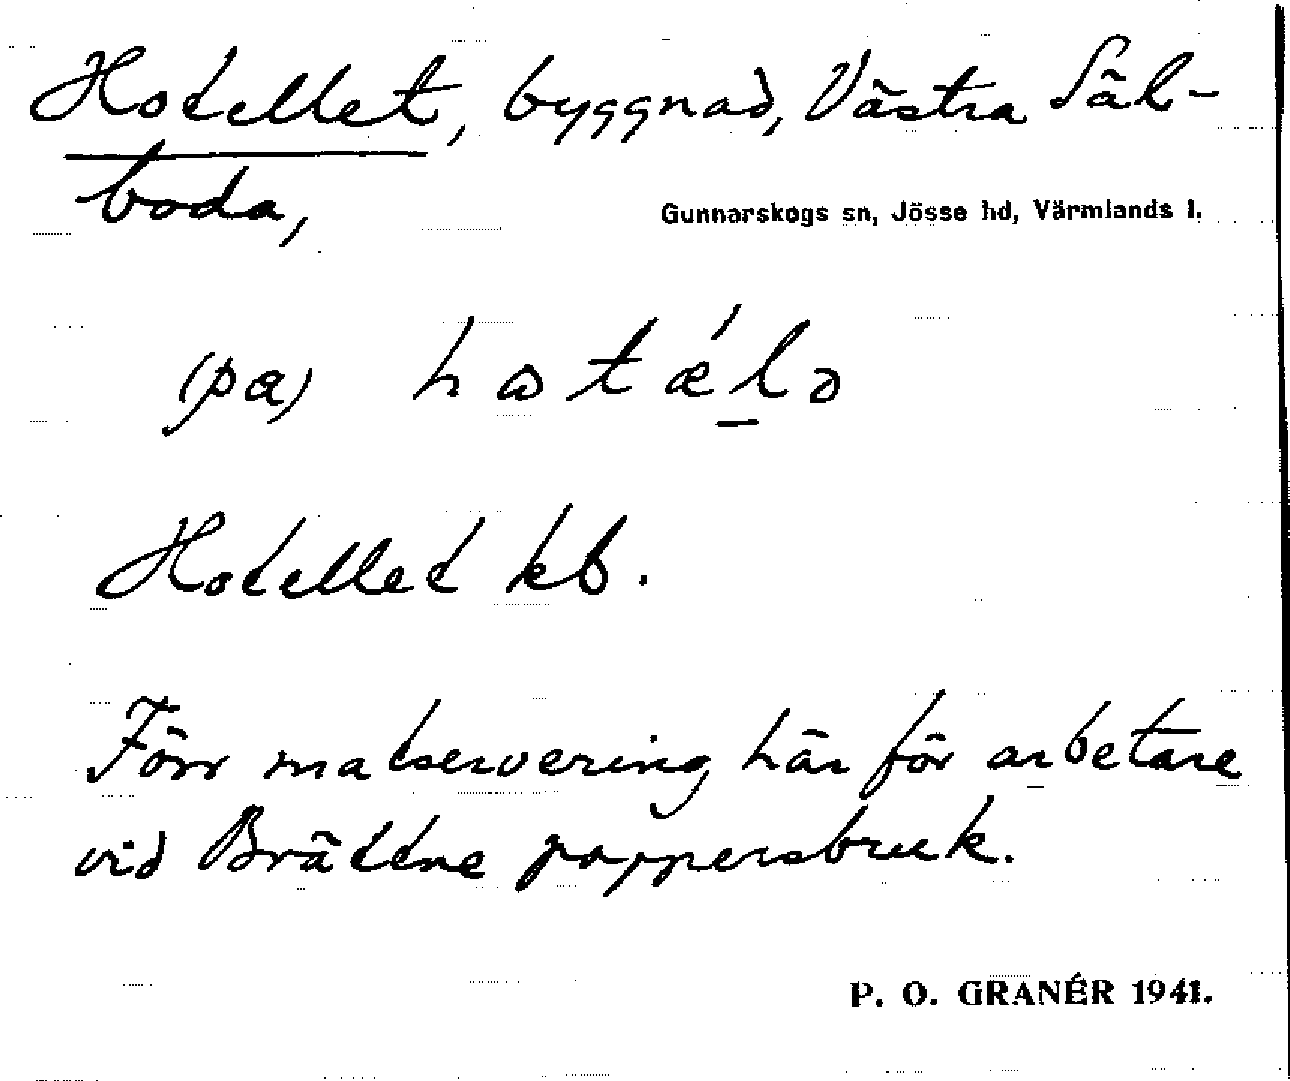 Hotellet, byggnad, Västra Säl-
boda,
Gunnarskogs sn, Jösse hd, Värmlands l.
(pa) hotǽlə
Hotellet kb.
Förr matservering här för arbetare
vid Brättne pappersbruk.
P. O. GRANÉR 1941.